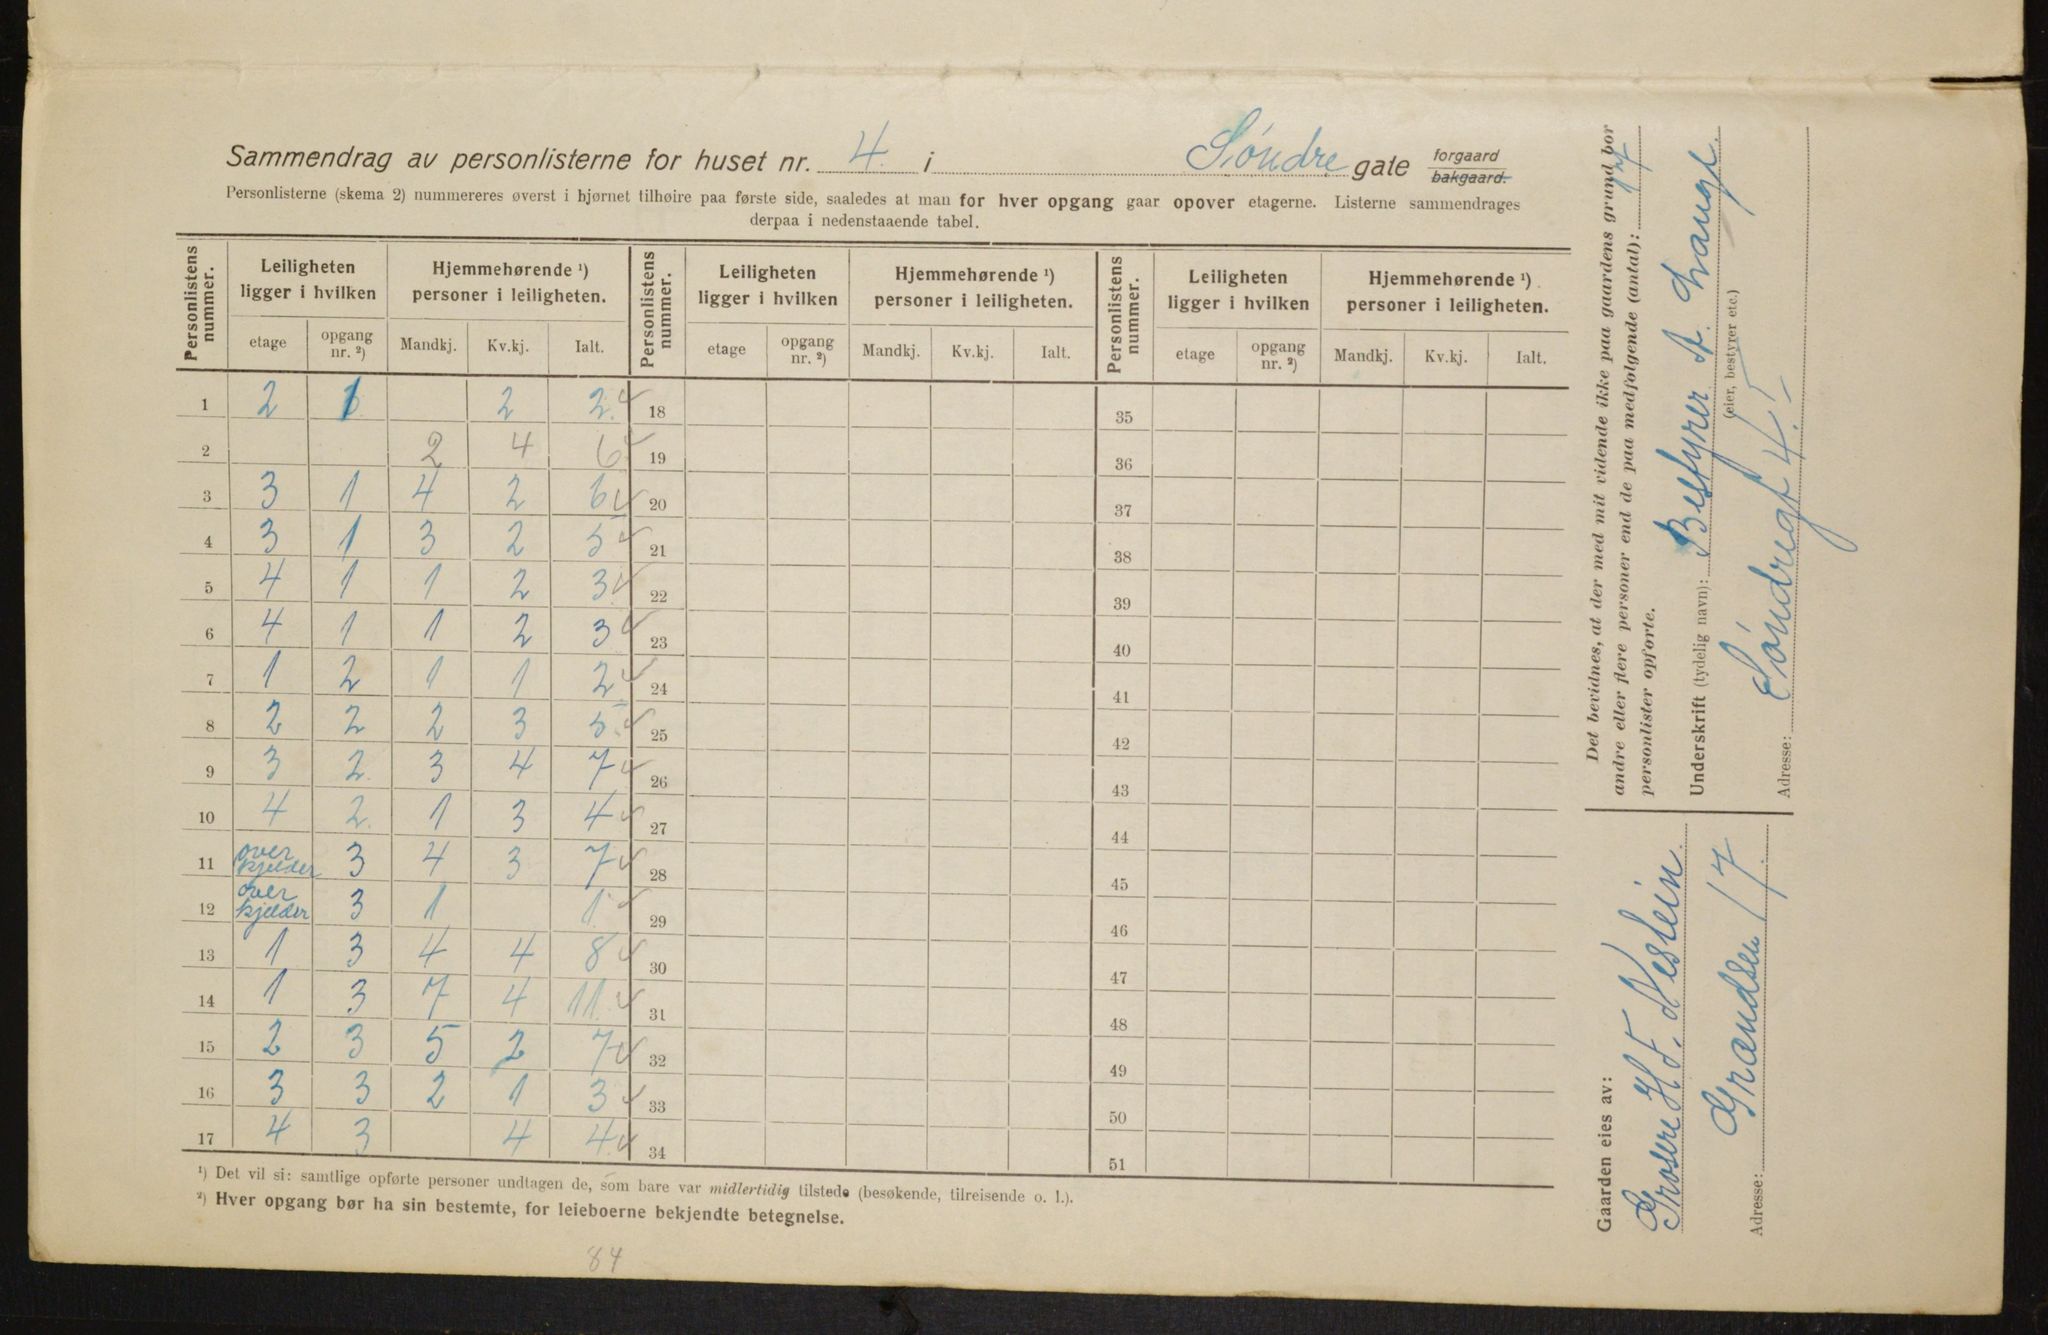 Sammendrag av personlisterne for huset nr. 4 i Söndre gate forgaard bakgaard.
Personlisterne (skema 2) nummereres øverst i hjørnet tilhøire paa første side, saaledes at man for hver opgang gaar opover etagerne. Listerne sammendrages
derpaa i nedenstaaende tabel.
Personlistens nummer. Leiligheten ligger i hvilken Hjemmehørende ¹) personer i leiligheten. Personlistens nummer. Leiligheten ligger i hvilken Hjemmehørende ¹) personer i leiligheten. Personlistens nummer. Leiligheten ligger i hvilken Hjemmehørende ¹) personer i leiligheten.
etage opgang nr. ²) Mandkj. Kv.kj. Ialt. etage opgang nr. ²) Mandkj. Kv.kj. Ialt. etage opgang nr. ²) Mandkj. Kv.kj. Ialt.
1 2 1 2 2 18 35
2 2 4 6 19 36
3 3 1 4 2 6 20 37
4 3 1 3 2 5 21 38
5 4 1 1 2 3 22 39
6 4 1 1 2 3 23 40
7 1 2 1 1 2 24 41
8 2 2 2 3 5 25 42
9 3 2 3 4 7 26 43
10 4 2 1 3 4 27 44
11 over kjelder 3 4 3 7 28 45
12 over kjelder 3 1 1 29 46
13 1 3 4 4 8 30 47
14 1 3 7 4 11 31 48
15 2 3 5 2 7 32 49
16 3 3 2 1 3 33 50
17 4 3 4 4 34 51
¹) Det vil si: samtlige opførte personer undtagen de, som bare var midlertidig tilstede (besøkende, tilreisende o. l.).
²) Hver opgang bør ha sin bestemte, for leieboerne bekjendte betegnelse.
84
Det bevidnes, at der med mit vidende ikke paa gaardens grund bor
andre eller flere personer end de paa medfølgende (antal): 17
personlister opførte.
Underskrift (tydelig navn): Bestyrer A. Lange.
(eier, bestyrer etc.)
Adresse: Söndregt 4 I
Gaarden eies av:
Grosere H. F. Neslein
Adresse: Grændsen 17.